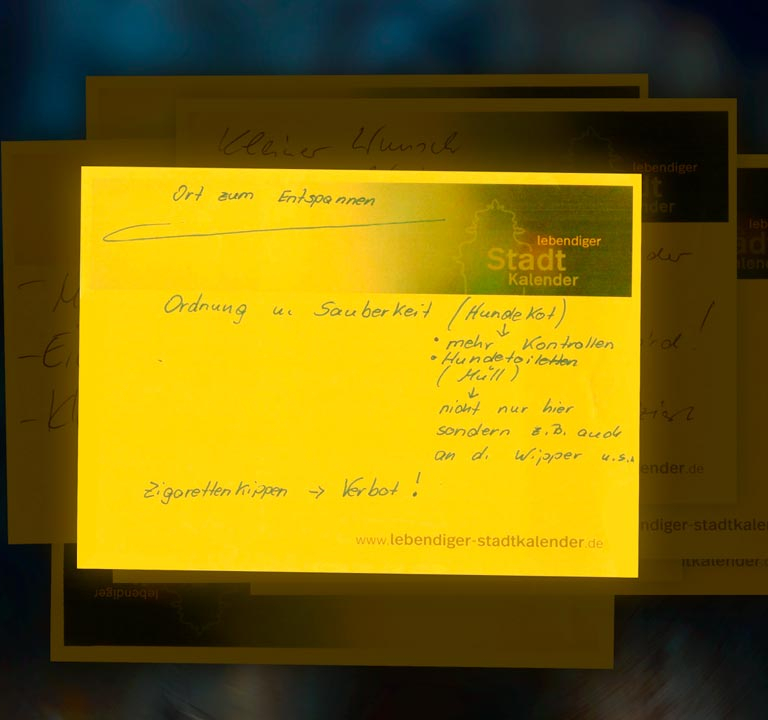 Kleiner Wunsch
lebendiger
Ort zum Entspannen
lebendiger
Stadt
Kalender
Ordnung u. Sauberkeit (Hundekot)
↓
• mehr Kontrollen
• Hundetoiletten
(Müll)
↓
nicht nur hier
sondern z.B. auch
an d. Wipper u.s.w
Zigarettenkippen → Verbot!
www.lebendiger-stadtkalender.de
ender.de
ndiger-stadtkalen
lebendiger